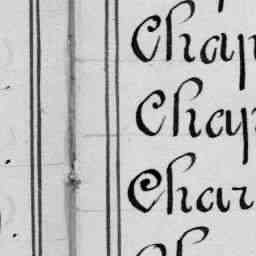 Chap
Chap
Char